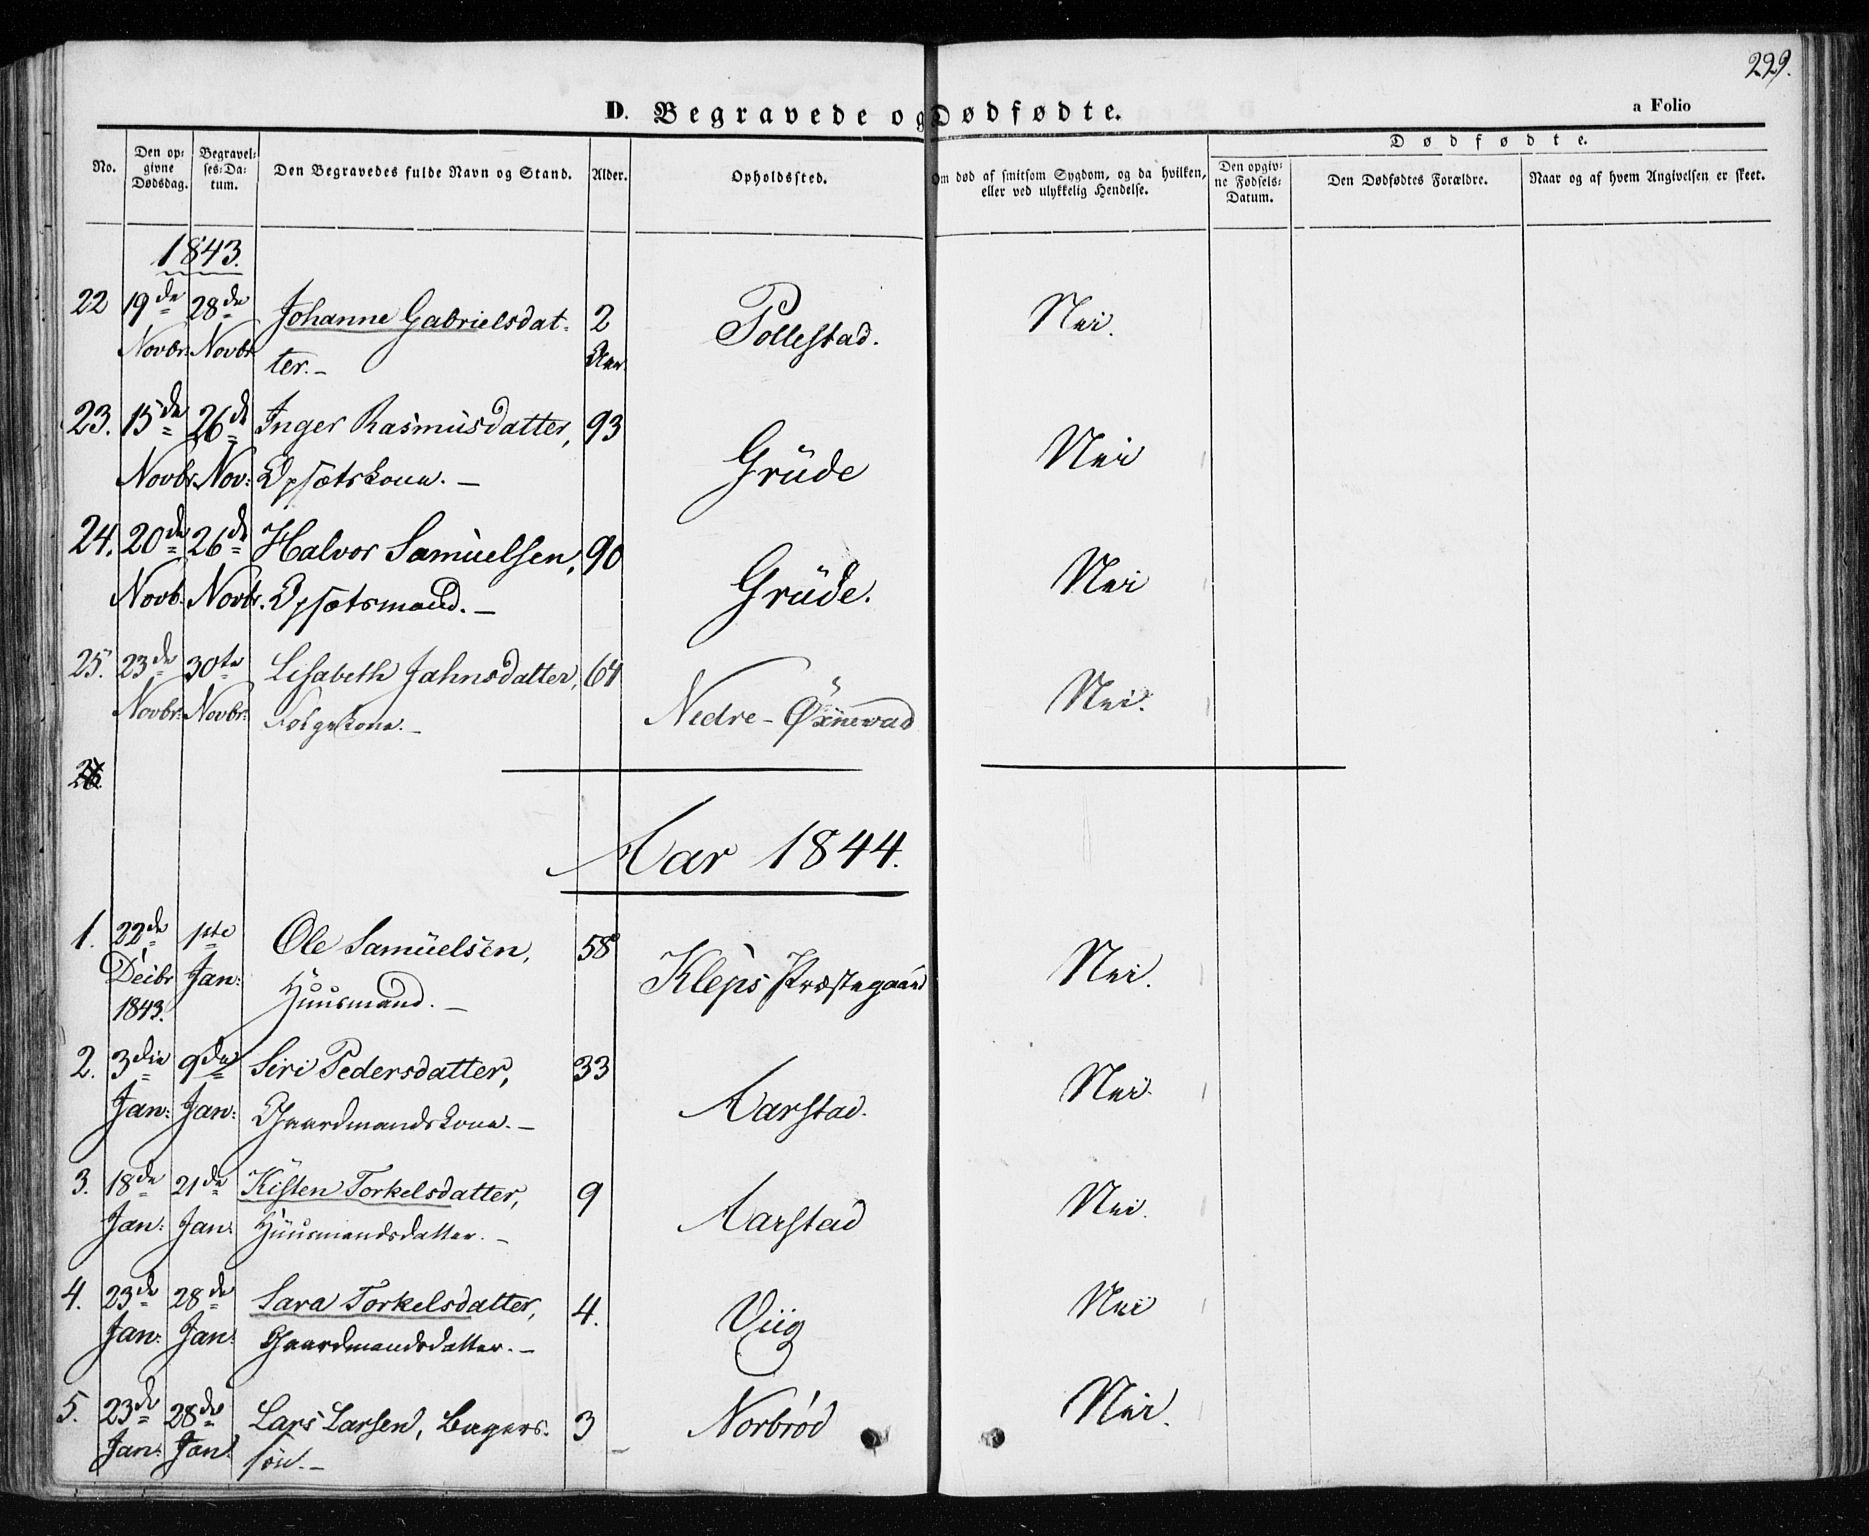 229.
D. Begravede og Dødfødte.
a Folio
No.
Den op-
givne
Dødsdag.
Begravel-
ses-Da-
tum.
Den Begravedes fulde Navn og Stand.
Alder.
Opholdssted.
Om død af smitsom Sygdom, og da hvilken,
eller ved ulykkelig Hendelse.
Dødfødte.
Den opgiv-
ne Fødsels-
Datum.
Den Dødfødtes Forældre.
Naar og af hvem Angivelsen er skeet.
1843.
22 19de 28de Johanne Gabrielsdat- 2 Pollestad. Nei.
Novbr: Novbr ter.- Aar.
23. 15de 26de Inger Rasmusdatter, 93 Grüde Nei
Novbr. Nov: Opsætskone. -
24. 20de 26de Halvor Samuelsen, 90 Grüde. Nei
Novb: Novbr. Opsætsmand. -
25. 23de 30te Lisabeth Jahnsdatter, 64 Nedre-Øxnevad Nei.
Novbr: Novbr: Folgekone. -
26
Aar 1844.
1. 22de 1ste Ole Samuelsen, 58 Kleps Præstegaard Nei.
Decbr Jan: Huusmand. -
1843.
2. 3die 9de Siri Pedersdatter, 33 Aarstad. Nei.
Jan: Jan: Gaardmandskone. -
3. 18de 21de Kisten Torkelsdatter, 9 Aarstad Nei.
Jan: Jan: Huusmandsdatter. -
4. 23de 28de Sara Torkelsdatter, 4. Viig Nei
Jan: Jan: Gaardmandsdatter. -
5. 23de 28de Lars Larsen, 3 Norbrød Nei.
Jan: Jan: søn. -